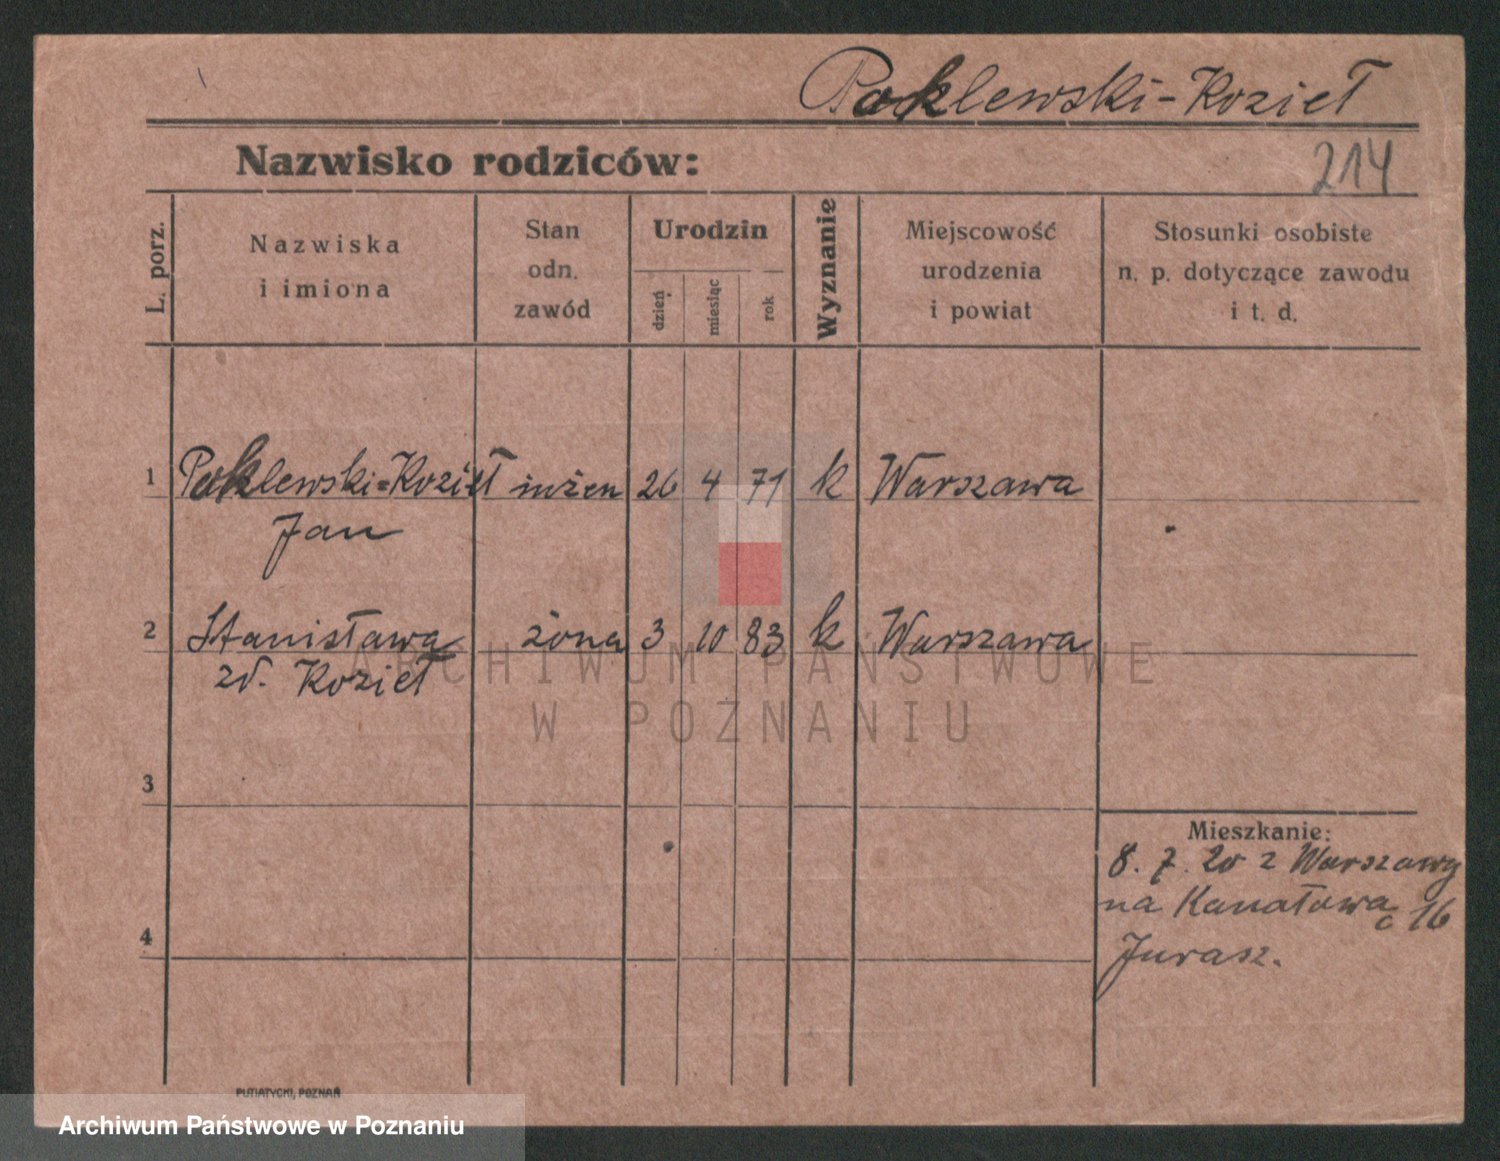 Poklewski-Kozieł
Nazwisko rodziców:
214
L. porz.
Nazwiska
i imiona
Stan
odn.
zawód
Urodzin
dzień
miesiąc
rok
Wyznanie
Miejscowość
urodzenia
i powiat
Stosunki osobiste
n. p. dotyczące zawodu
i t. d.
1 Poklewski-Kozieł inżen 26 4 71 k Warszawa
Jan
2 Stanisława żona 3 10 83 k Warszawa
zd. Kozieł
ARCHIWUM PAŃSTWOWE
W POZNANIU
3
Mieszkanie:
8. 7. 20 z Warszawy
na Kanałowa 16
4
Jurasz.
PUTIATYCKI, POZNAŃ
Archiwum Państwowe w Poznaniu